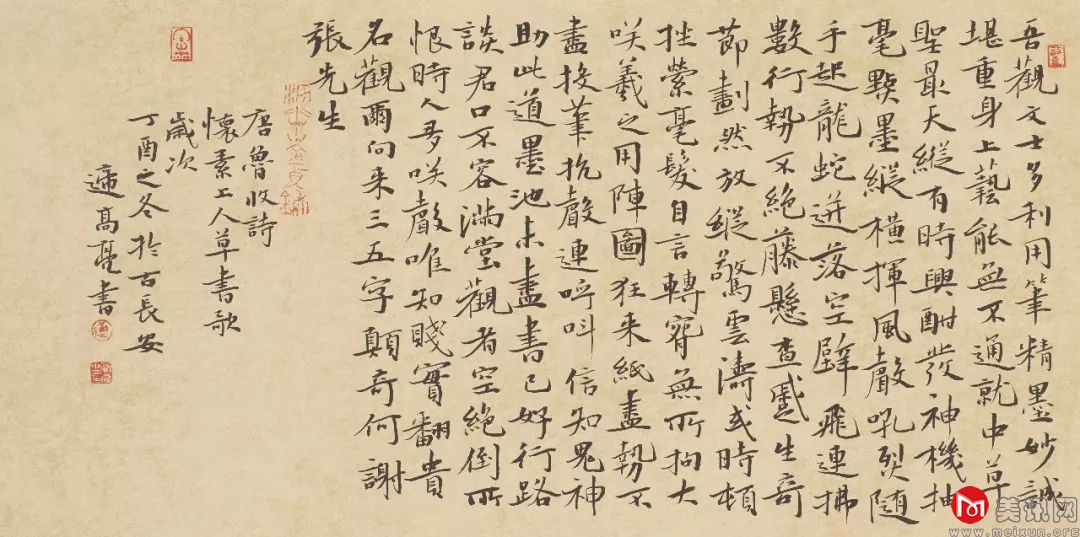 吾觀文士多利用筆精墨妙誠
堪重身上藝能無不通就中草
聖最天縱有時興酣發神機抽
毫點墨縱橫揮風聲吼烈隨
手起龍蛇迸落空壁飛連拂
數行勢不絕藤懸查蹙生奇
節劃然放縱驚雲濤或時頓
挫縈毫髮自言轉無所拘大
咲羲之用陣圖狂来紙盡勢不
盡投筆抗聲連呼叫信知鬼神
助此道墨池未盡書已好行路
談君口不容滿堂觀者空絕倒所
恨時人多咲聲唯知賤實翻貴
名觀爾向来三五字顛奇何謝
張先生
唐魯收詩
懷素上人草書歌
歲次
丁酉之冬於古長安
高亮書
美讯网
www.meixun.org